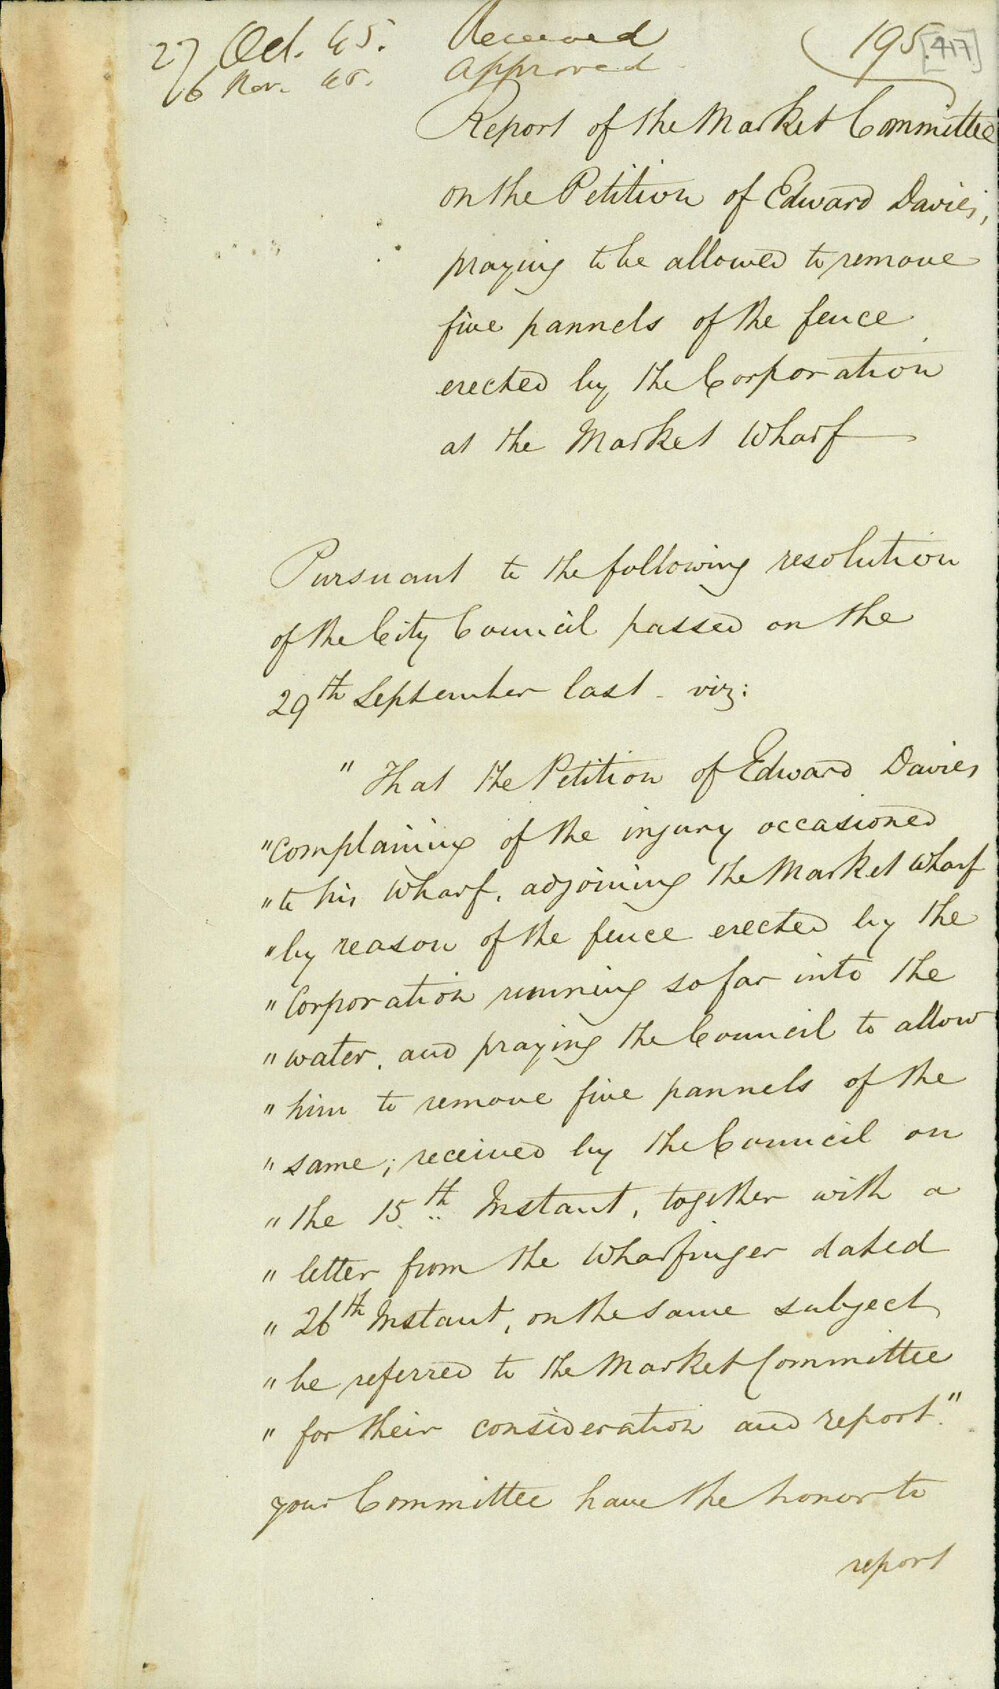 27 Oct. 45. Received
16 Nov. 45. Approved
195. [417]
Report of the Market Committee
on the Petition of Edward Davies,
praying to be allowed to remove
five pannels of the fence
erected by the Corporation
at the Market Wharf
Pursuant to the following resolution
of the City Council passed on the
29th September last - viz:
" That the Petition of Edward Davies
" complaining of the injury occasioned
" to his Wharf, adjoining the Market Wharf
" by reason of the fence erected by the
" Corporation running so far into the
" water, and praying the Council to allow
" him to remove five pannels of the
" same; received by the Council on
" the 15th Instant, together with a
" letter from the Wharfinger dated
" 26th Instant, on the same subject
" be referred to the Market Committee
" for their consideration and report."
your Committee have the honor to
report